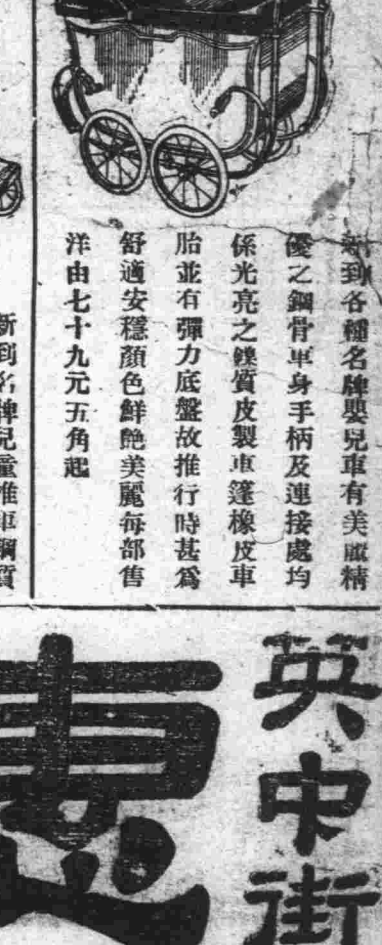 新到各種名牌嬰兒車有美麗精
優之鋼骨車身手柄及連接處均
係光亮之鎳質皮製車篷橡皮車
胎並有彈力底盤故推行時甚爲
舒適安穩顏色鮮艶美麗每部售
洋由七十九元五角起
新到名牌兒童推車鋼質
英中街
惠